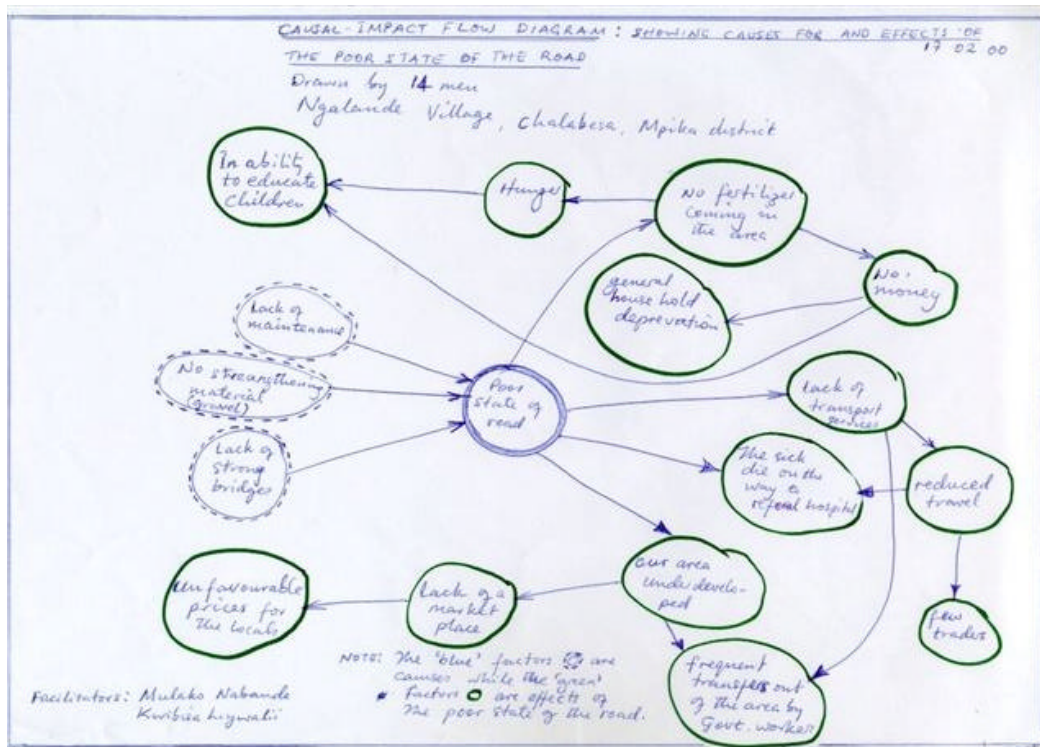 CAUSAL-IMPACT FLOW DIAGRAM: SHOWING CAUSES FOR AND EFFECTS OF
THE POOR STATE OF THE ROAD
17 02 00
Drawn by 14 men
Ngalande Village, Chalabesa, Mpika district
In ability
to educate
children
Hunger
No fertilizer
coming in
the area
No
money
general
house hold
deprevation
Lack of
maintenance
No streangthening
material
(gravel)
Lack of
strong
bridges
Poor
state of
road
Lack of
transport
services
The sick
die on the
way to
referal hospital
reduced
travel
few
trades
our area
underdevelo-
ped
Lack of a
market
place
Unfavourable
prices for
the locals
frequent
transfers out
of the area by
Govt. worker
NOTE: The 'blue' factors are
causes while the 'green'
Factors are effects of
the poor state of the road.
Facilitators: Mulako Nabanda